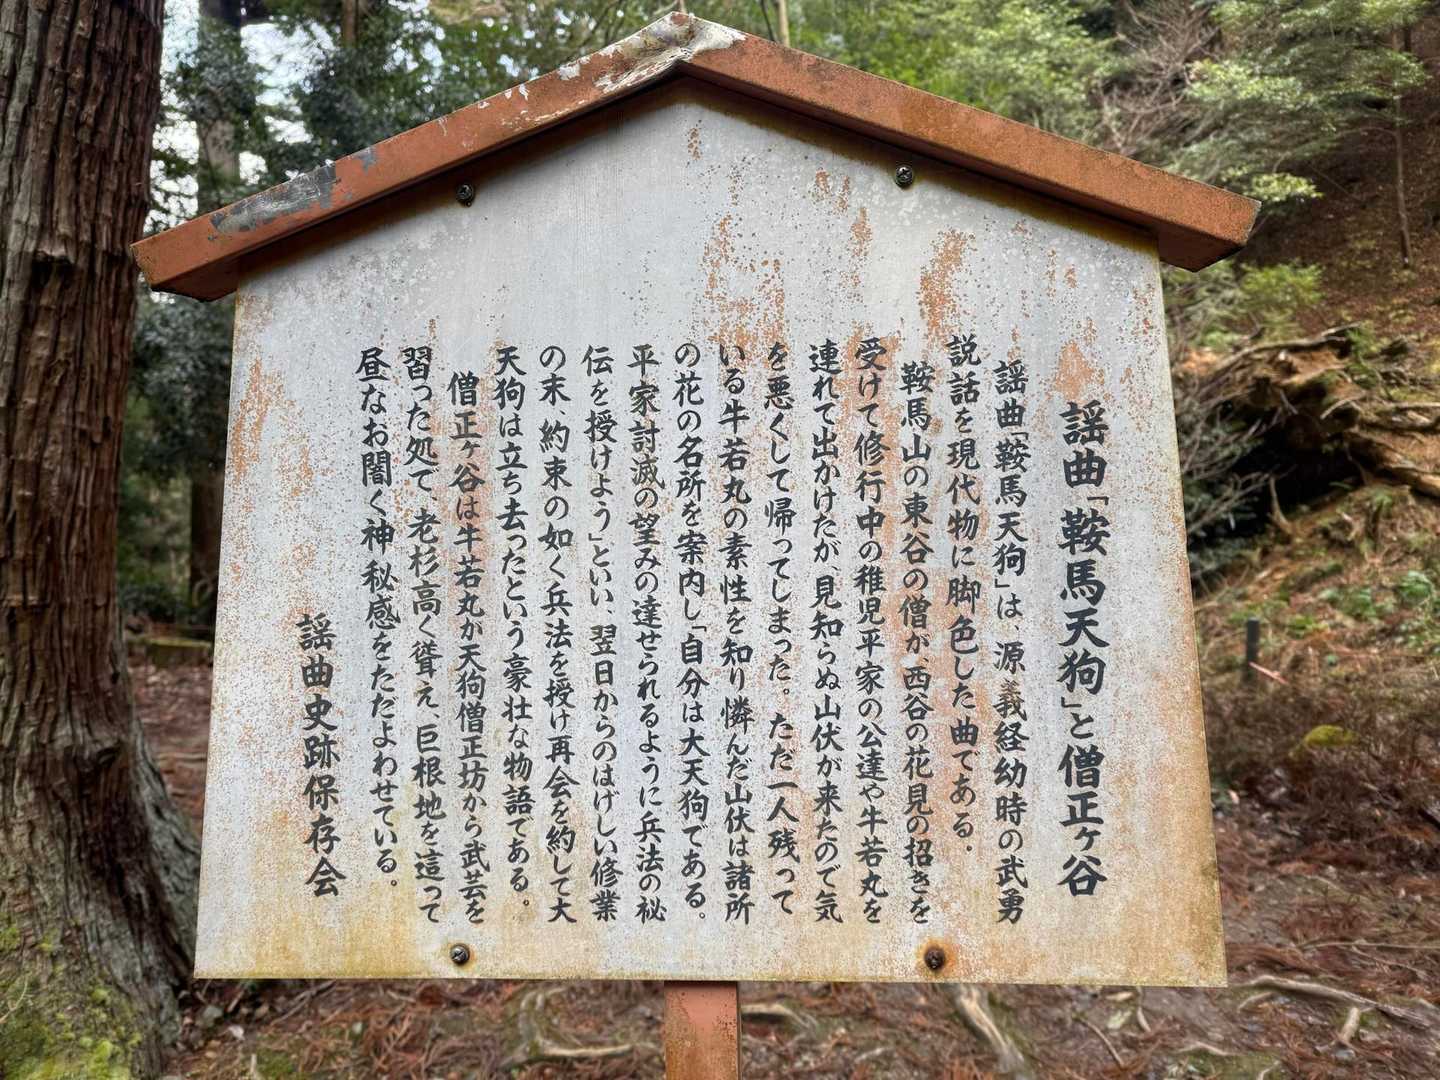 謡曲「鞍馬天狗」と僧正ヶ谷
謡曲「鞍馬天狗」は、源義経幼時の武勇
説話を現代物に脚色した曲である.
鞍馬山の東谷の僧が、西谷の花見の招きを
受けて修行中の稚児平家の公達や牛若丸を
連れて出かけたが、見知らぬ山伏が来たので気
を悪くして帰ってしまった。ただ一人残って
いる牛若丸の素性を知り憐んだ山伏は諸所
の花の名所を案内し「自分は大天狗である。
平家討滅の望みの達せられるように兵法の秘
伝を授けよう」といい、翌日からのはげしい修業
の末、約束の如く兵法を授け再会を約して大
天狗は立ち去ったという豪壮な物語である。
僧正ヶ谷は牛若丸が天狗僧正坊から武芸を
習った処で、老杉高く聳え、巨根地を這って
昼なお闇く神秘感をただよわせている。
謡曲史跡保存会